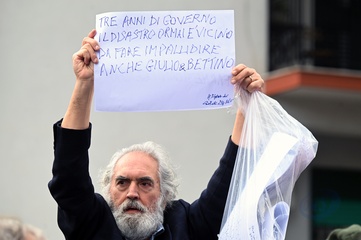 TRE ANNI DI GOVERNO
IL DISASTRO ORMAI È VICINO
DA FARE IMPALLIDIRE
ANCHE GIULIO & BETTINO